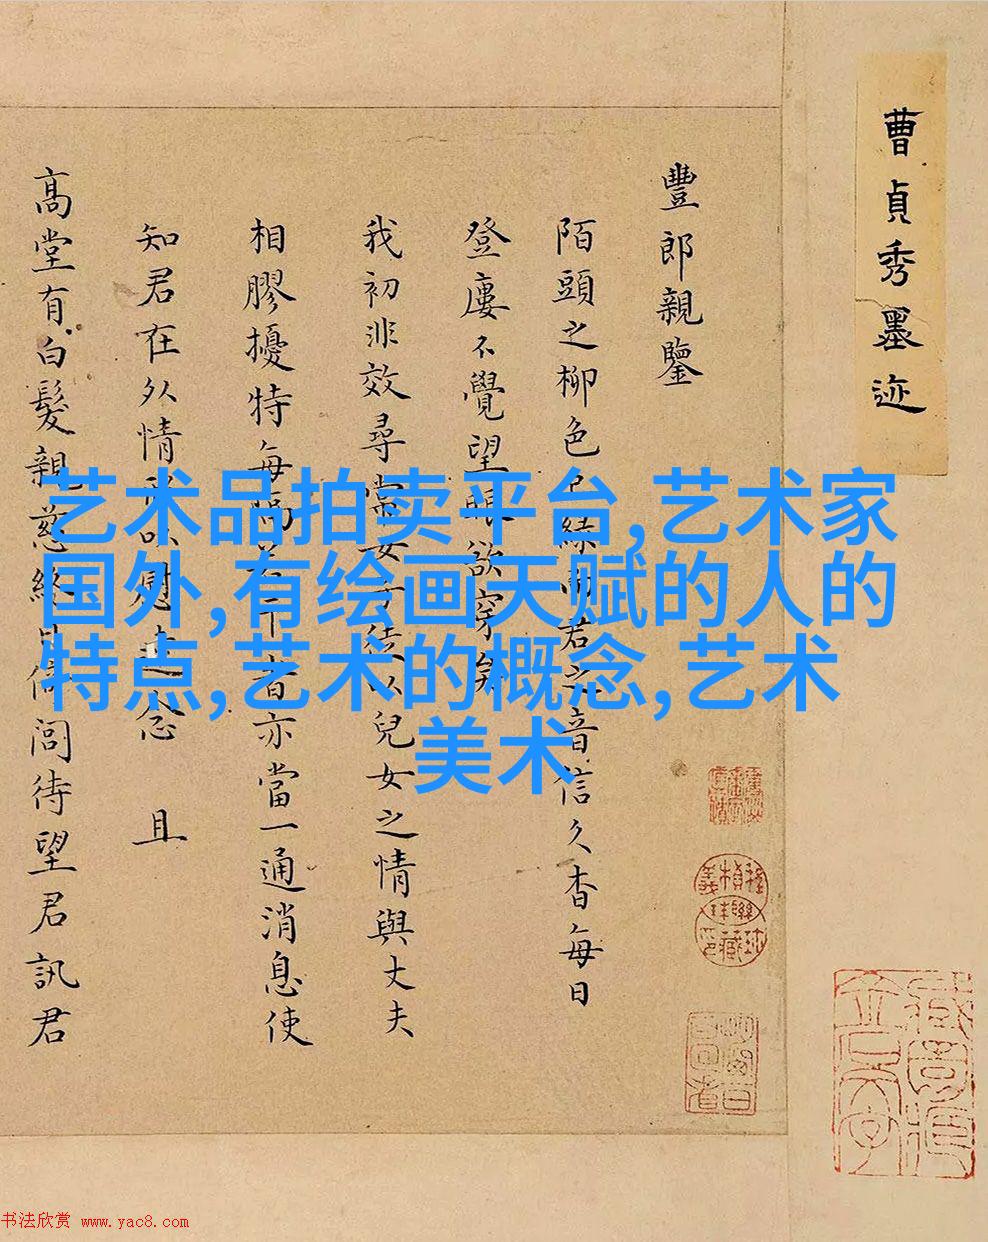 曹貞秀墨迹
豐郎親鑒
陌頭之柳色已綠而君之音信久杳每日
登廔不覺望眼欲穿矣
我初非效尋常女子徒以兒女之情與丈夫
相膠擾特每隔若干者亦當一通消息使
知君在外情形以慰遠念 且
高堂有白髮親慈終日倚閭待望君訊君
艺术品拍卖平台,艺术家
国外,有绘画天赋的人的
特点,艺术的概念,艺术
美术
书法欣赏 www.yac8.com